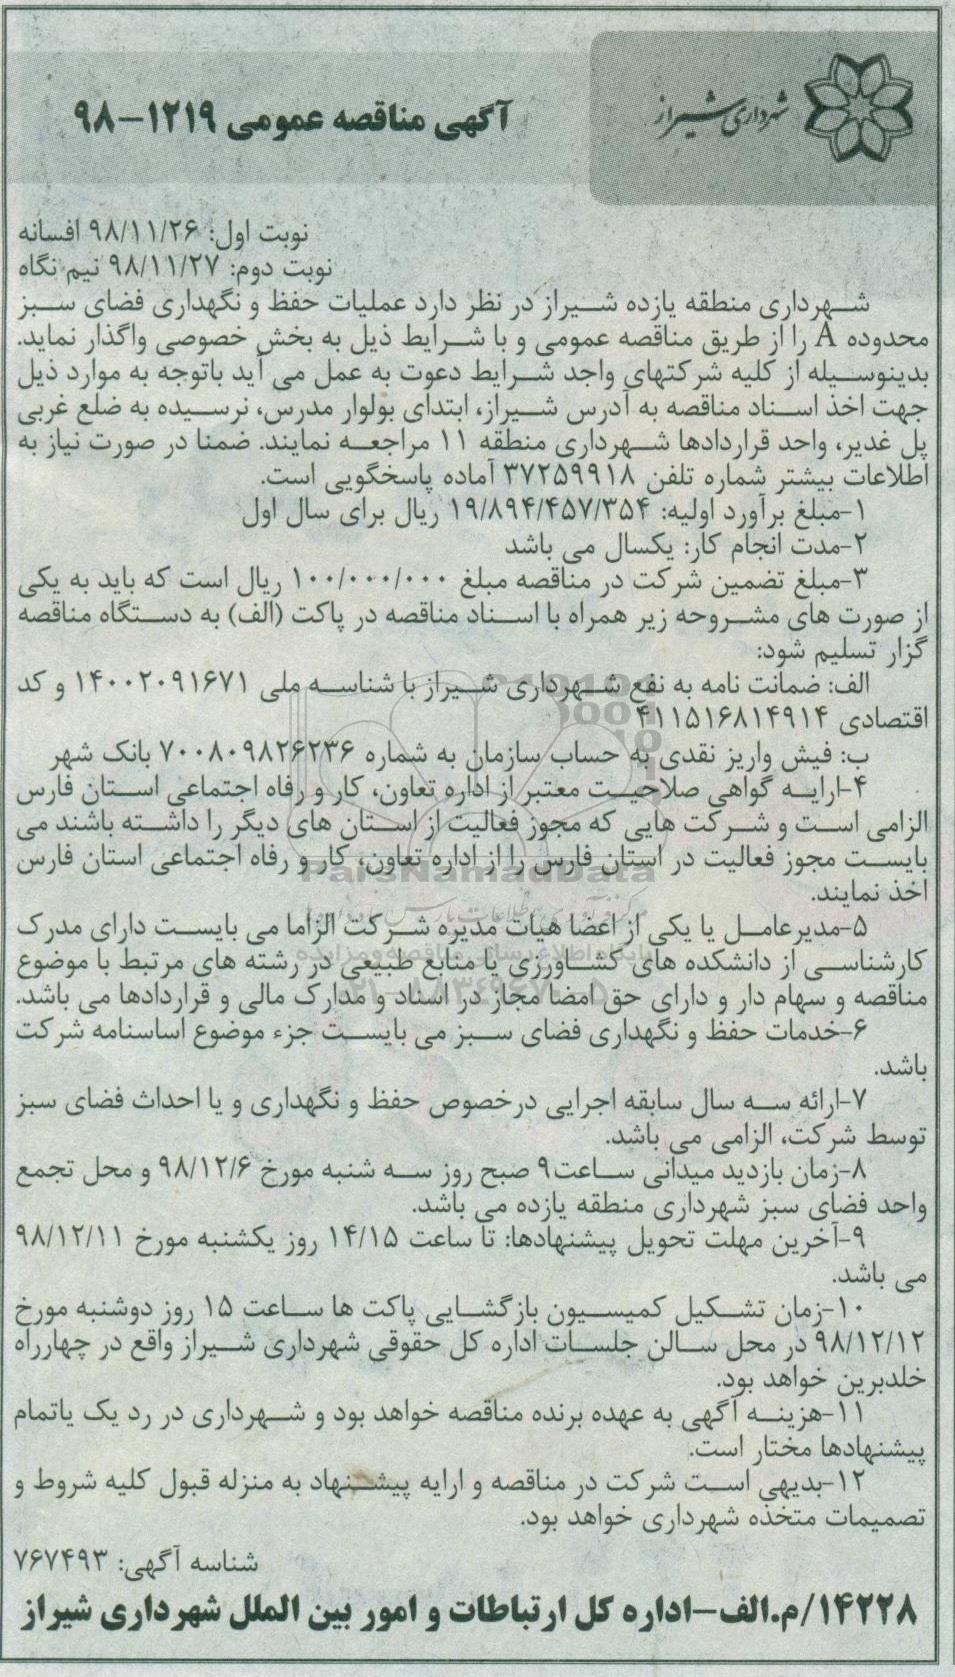 شهرداری شیراز
آگهی مناقصه عمومی ۱۲۱۹-۹۸
نوبت اول: ۹۸/۱۱/۲۶ افسانه
نوبت دوم: ۹۸/۱۱/۲۷ نیم نگاه
شهرداری منطقه یازده شیراز در نظر دارد عملیات حفظ و نگهداری فضای سبز
محدوده A را از طریق مناقصه عمومی و با شرایط ذیل به بخش خصوصی واگذار نماید.
بدینوسیله از کلیه شرکتهای واجد شرایط دعوت به عمل می آید باتوجه به موارد ذیل
جهت اخذ اسناد مناقصه به آدرس شیراز، ابتدای بولوار مدرس، نرسیده به ضلع غربی
پل غدیر، واحد قراردادها شهرداری منطقه ۱۱ مراجعه نمایند. ضمنا در صورت نیاز به
اطلاعات بیشتر شماره تلفن ۳۷۲۵۹۹۱۸ آماده پاسخگویی است.
۱-مبلغ برآورد اولیه: ۱۹/۸۹۴/۴۵۷/۳۵۴ ریال برای سال اول
۲-مدت انجام کار: یکسال می باشد
۳-مبلغ تضمین شرکت در مناقصه مبلغ ۱۰۰/۰۰۰/۰۰۰ ریال است که باید به یکی
از صورت های مشروحه زیر همراه با اسناد مناقصه در پاکت (الف) به دستگاه مناقصه
گزار تسلیم شود:
الف: ضمانت نامه به نفع شهرداری شیراز با شناسه ملی ۱۴۰۰۲۰۹۱۶۷۱ و کد
اقتصادی ۴۱۱۵۱۶۸۱۴۹۱۴
ب: فیش واریز نقدی به حساب سازمان به شماره ۷۰۰۸۰۹۸۲۶۲۳۶ بانک شهر
۴-ارایه گواهی صلاحیت معتبر از اداره تعاون، کار و رفاه اجتماعی استان فارس
الزامی است و شرکت هایی که مجوز فعالیت از استان های دیگر را داشته باشند می
بایست مجوز فعالیت در استان فارس را از اداره تعاون، کار و رفاه اجتماعی استان فارس
اخذ نمایند.
ParsNamadData
۵-مدیرعامل یا یکی از اعضا هیات مدیره شرکت الزاما می بایست دارای مدرک
کارشناسی از دانشکده های کشاورزی یا منابع طبیعی در رشته های مرتبط با موضوع
مناقصه و سهام دار و دارای حق امضا مجاز در اسناد و مدارک مالی و قراردادها می باشد.
۶-خدمات حفظ و نگهداری فضای سبز می بایست جزء موضوع اساسنامه شرکت
باشد.
۷-ارائه سه سال سابقه اجرایی درخصوص حفظ و نگهداری و یا احداث فضای سبز
توسط شرکت، الزامی می باشد.
۸-زمان بازدید میدانی ساعت۹ صبح روز سه شنبه مورخ ۹۸/۱۲/۶ و محل تجمع
واحد فضای سبز شهرداری منطقه یازده می باشد.
۹-آخرین مهلت تحویل پیشنهادها: تا ساعت ۱۴/۱۵ روز یکشنبه مورخ ۹۸/۱۲/۱۱
می باشد.
۱۰-زمان تشکیل کمیسیون بازگشایی پاکت ها ساعت ۱۵ روز دوشنبه مورخ
۹۸/۱۲/۱۲ در محل سالن جلسات اداره کل حقوقی شهرداری شیراز واقع در چهارراه
خلدبرین خواهد بود.
۱۱-هزینه آگهی به عهده برنده مناقصه خواهد بود و شهرداری در رد یک یاتمام
پیشنهادها مختار است.
۱۲-بدیهی است شرکت در مناقصه و ارایه پیشنهاد به منزله قبول کلیه شروط و
تصمیمات متخذه شهرداری خواهد بود.
شناسه آگهی: ۷۶۷۴۹۳
۱۴۲۲۸/م.الف-اداره کل ارتباطات و امور بین الملل شهرداری شیراز